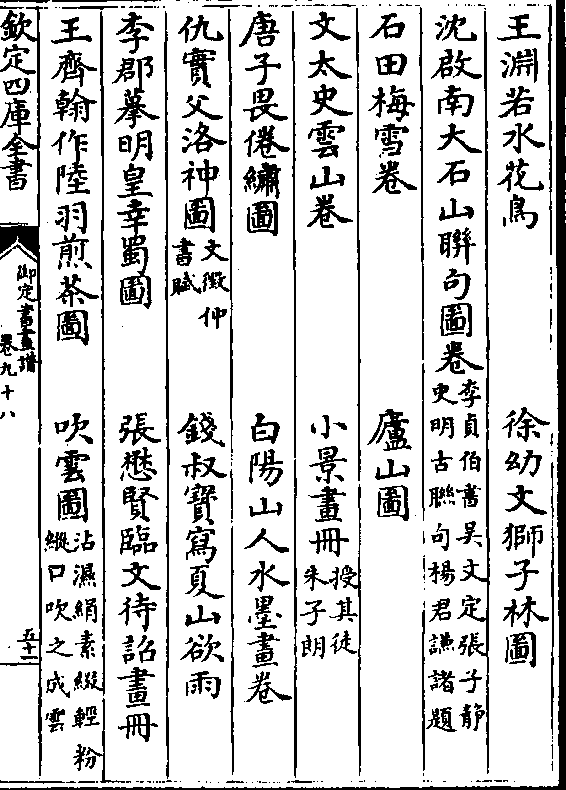 王淵若水花鳥　徐幼文獅子林圖
沈啟南大石山聯句圖卷李貞伯書吳文定張子靜史明古聯句楊君謙諸題
石田梅雪卷　廬山圖
文太史雲山卷　小景畫冊授其徒朱子朗
唐子畏倦繡圖　白陽山人水墨畫卷
仇實父洛神圖文徵仲書賦　錢叔寶寫夏山欲雨
李郡摹明皇幸蜀圖　張懋賢臨文待詔畫冊
王齊翰作陸羽煎茶圖　吹雲圖沾濕絹素綴輕粉縱口吹之成雲
欽定四庫全書　御定書畫譜　卷九十八　五十一